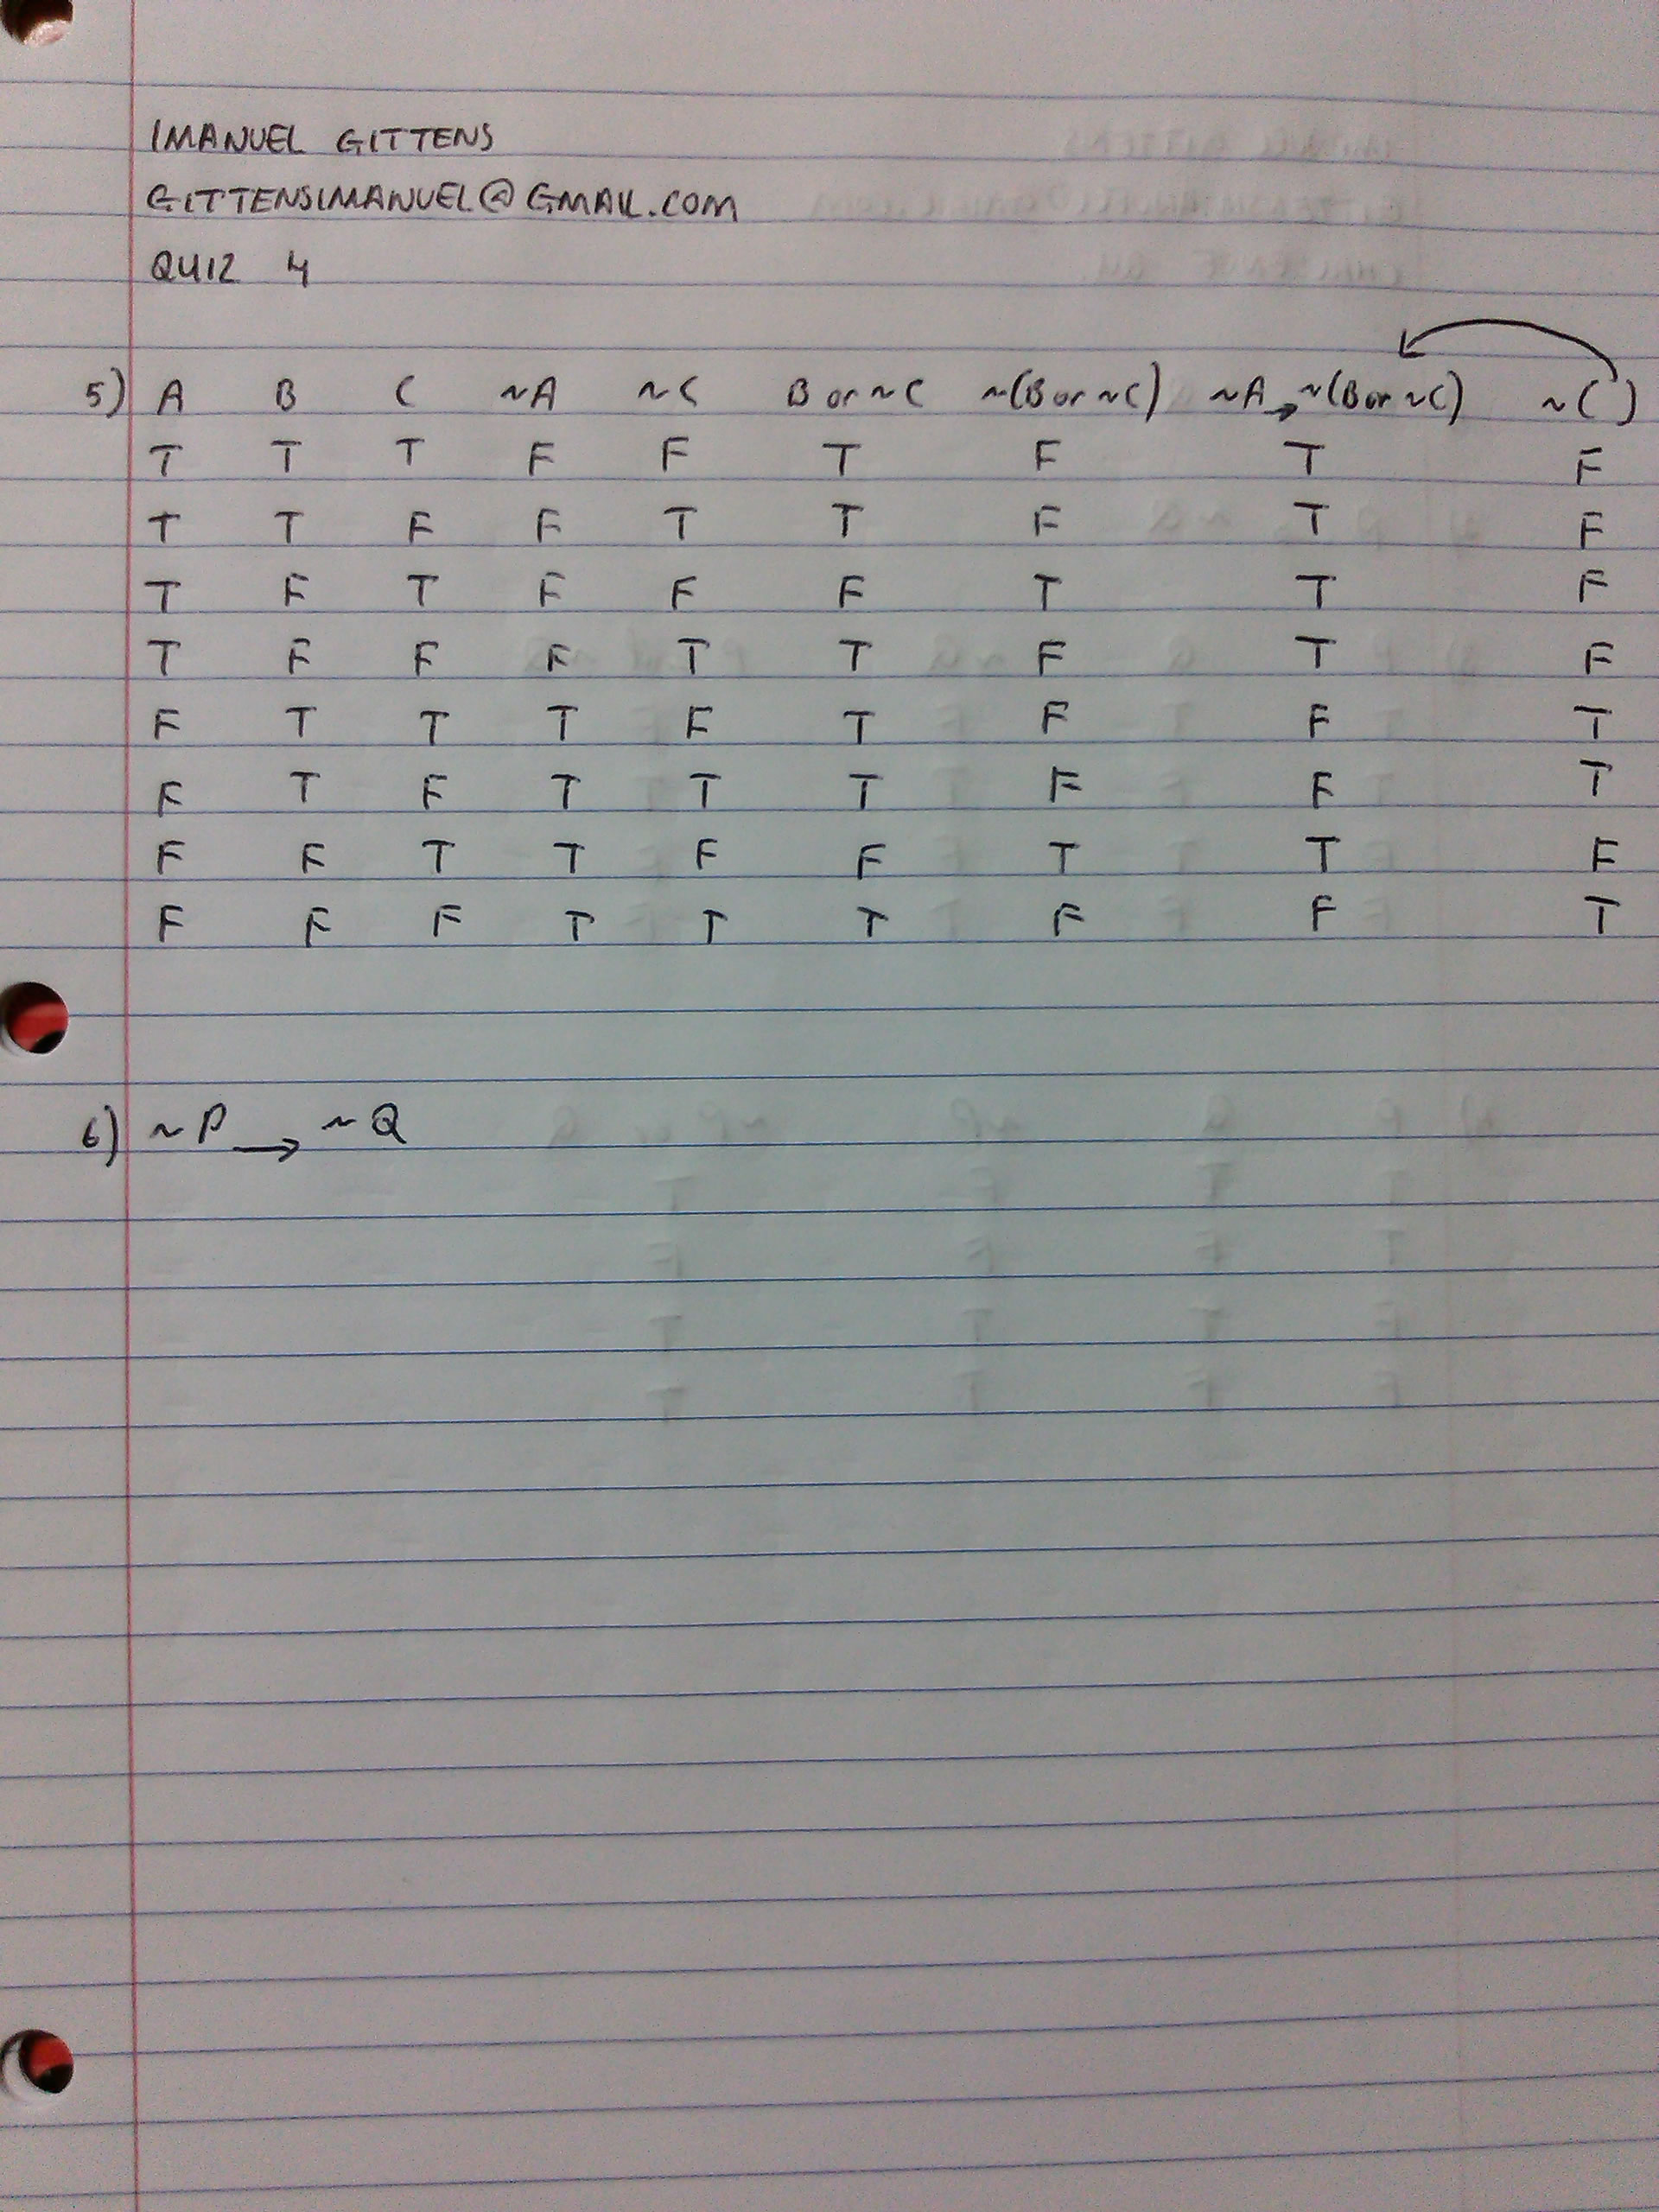 IMANUEL GITTENS
GITTENSIMANUEL@GMAIL.COM
QUIZ 4
5) A B C ~A ~C B or ~C ~(B or ~C) ~A → ~(B or ~C) ~( )
T T T F F T F T F
T T F F T T F T F
T F T F F F T T F
T F F F T T F T F
F T T T F T F F T
F T F T T T F F T
F F T T F F T T F
F F F T T T F F T
6) ~P → ~Q